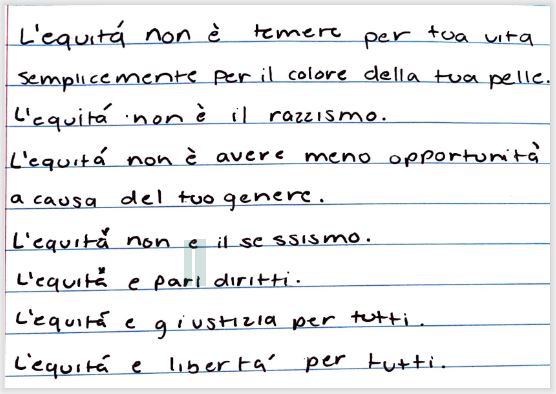 L'equitá non è temere per tua vita
semplicemente per il colore della tua pelle.
L'equitá non è il razzismo.
L'equitá non è avere meno opportunità
a causa del tuo genere.
L'equitá non e il sessismo.
L'equitá e pari diritti.
L'equitá e giustizia per tutti.
L'equitá e libertá per tutti.